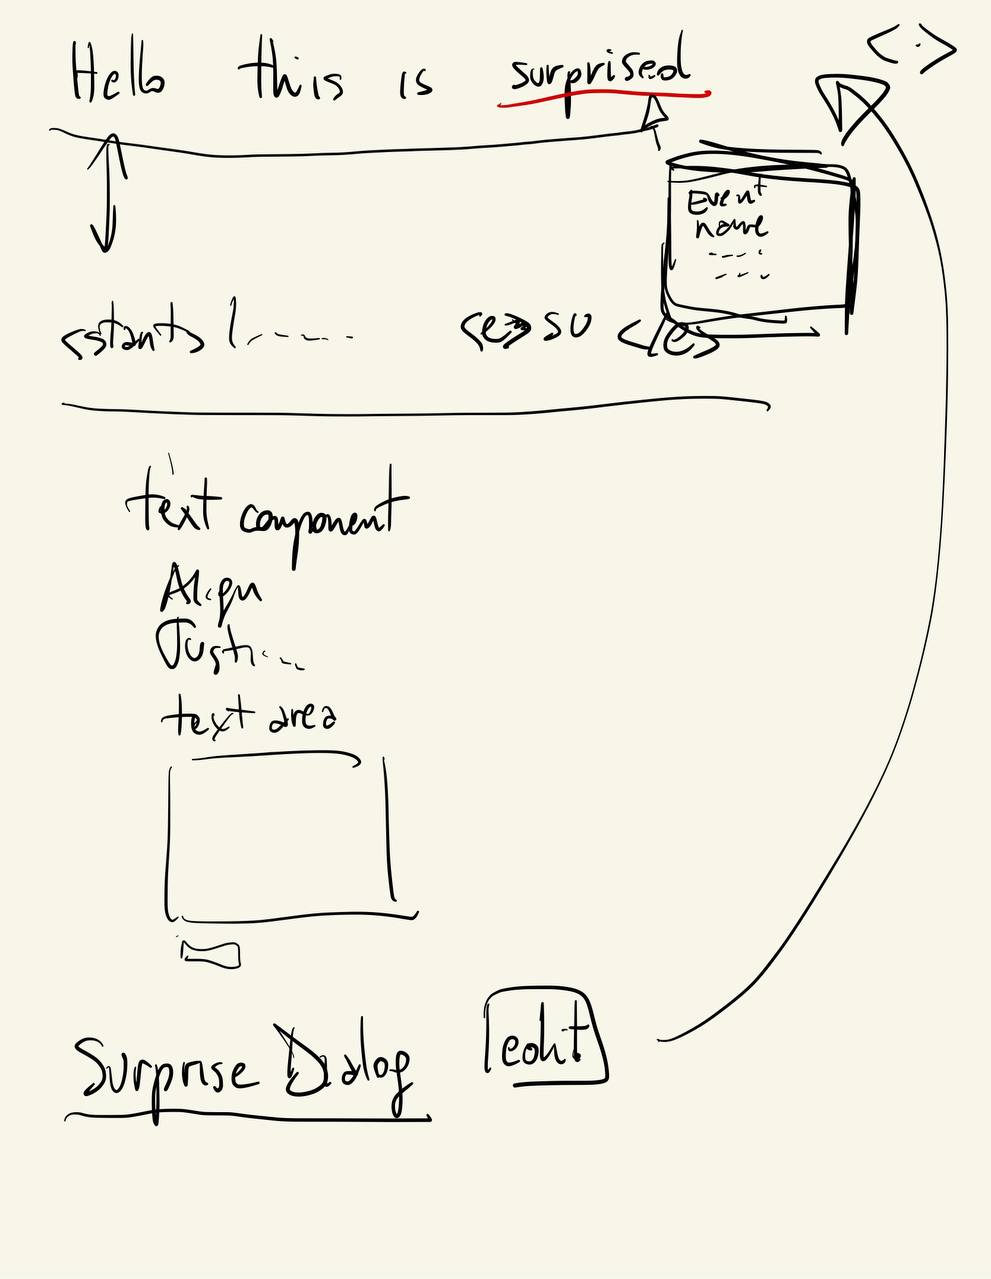 Hello this is surprised
< . >
Event
name
<start> <e> su </e>
text component
Align
Just....
text area
Surprise Dialog
edit